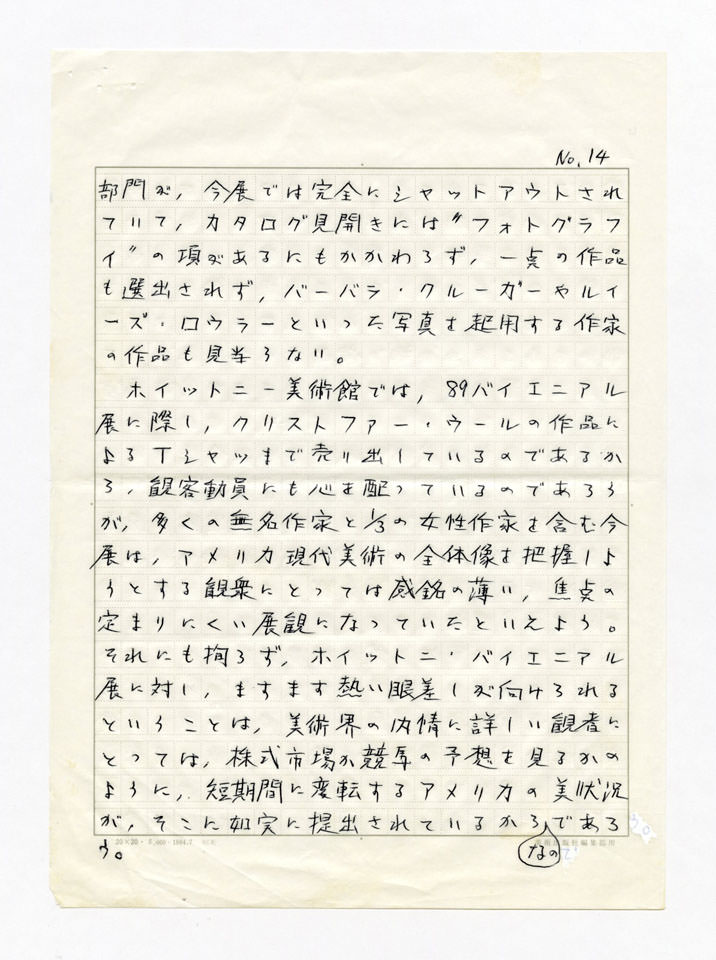 No. 14
部門が、今展では完全にシャットアウトされ
ていて、カタログ見開きには〃フォトグラフ
ィ〃の項があるにもかかわらず、一点の作品
も選出されず、バーバラ・クルーガーやルイ
ーズ・ロウラーといった写真を起用する作家
の作品も見当らない。
ホイットニー美術館では、89バイエニアル
展に際し、クリストファー・ウールの作品に
よるTシャツまで売り出しているのであるか
ら、観客動員にも心を配っているのであろう
が、多くの無名作家と1/3の女性作家を含む今
展は、アメリカ現代美術の全体像を把握しよ
うとする観衆にとっては感銘の薄い、焦点の
定まりにくい展観になっていたといえよう。
それにも拘らず、ホイットニ・バイエニアル
展に対し、ますます熱い眼差しが向けられる
ということは、美術界の内情に詳しい観者に
とっては、株式市場か競馬の予想を見るかの
ように、短期間に変転するアメリカの美状況
が、そこに如実に提出されているからであろ
う。
なの
20×20